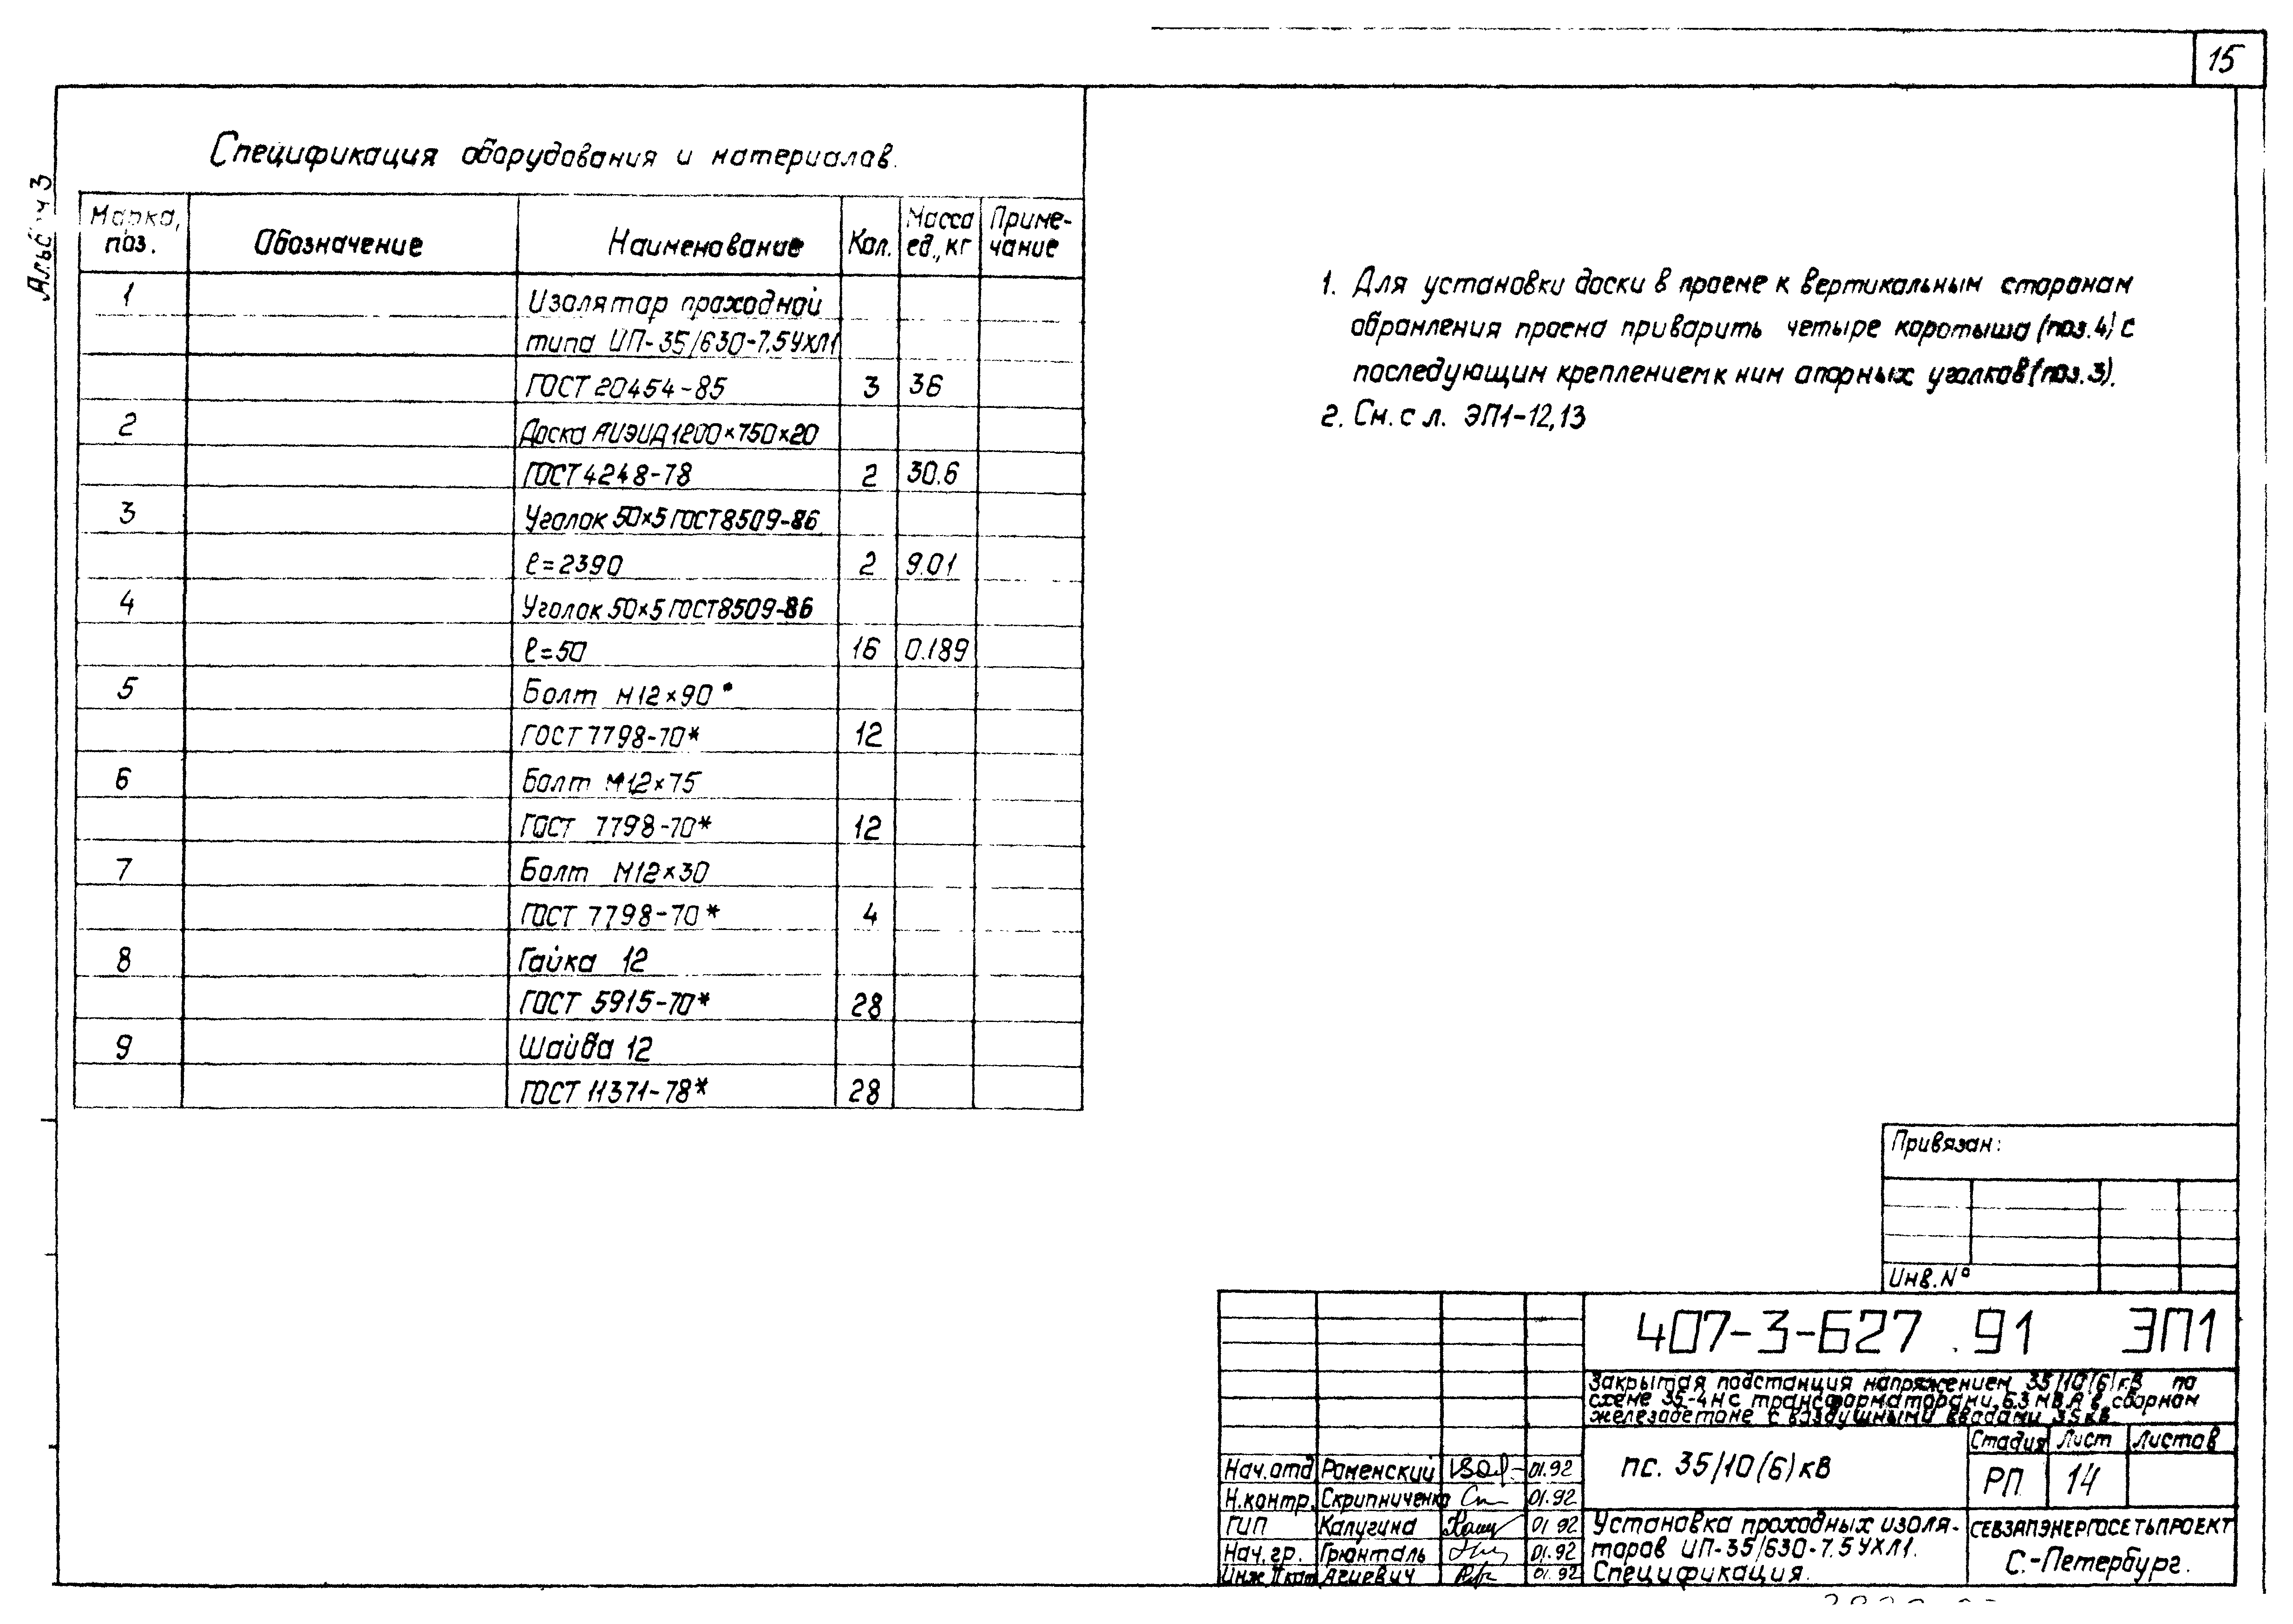 15
Альбом 3
Спецификация оборудования и материалов.
Марка, поз.
Обозначение
Наименование
Кол.
Масса ед., кг
Приме-
чание
1
Изолятор проходной
типа ИП-35/630-7.5УХЛ1
ГОСТ 20454-85 3 36
2
Доска АЦЭИД 1200×750×20
ГОСТ 4248-78 2 30.6
3
Уголок 50×5 ГОСТ 8509-86
ℓ=2390 2 9.01
4
Уголок 50×5 ГОСТ 8509-86
ℓ=50 16 0.189
5
Болт М12×90
ГОСТ 7798-70* 12
6
Болт М12×75
ГОСТ 7798-70* 12
7
Болт М12×30
ГОСТ 7798-70* 4
8
Гайка 12
ГОСТ 5915-70* 28
9
Шайба 12
ГОСТ 11371-78* 28
1. Для установки доски в проеме к вертикальным сторонам
обрамления проема приварить четыре коротыша (поз.4) с
последующим креплением к ним опорных уголков (поз.3).
2. См. с л. ЭП1-12,13
Привязан:
Инв.№
407-3-627.91 ЭП1
Закрытая подстанция напряжением 35/10(6)кВ по
схеме 35-4Н с трансформаторами 6.3 МВА в сборном
железобетоне с воздушными вводами 35кВ
пс. 35/10(6)кВ
Стадия Лист Листов
РП 14
Нач.отд Роменский 01.92
Н.контр. Скрипниченко 01.92
ГИП Калугина 01.92
Нач.гр. Грюнталь 01.92
Инж.II кат Агиевич 01.92
Установка проходных изоля-
торов ИП-35/630-7.5УХЛ1.
Спецификация.
СЕВЗАПЭНЕРГОСЕТЬПРОЕКТ
С.-Петербург.